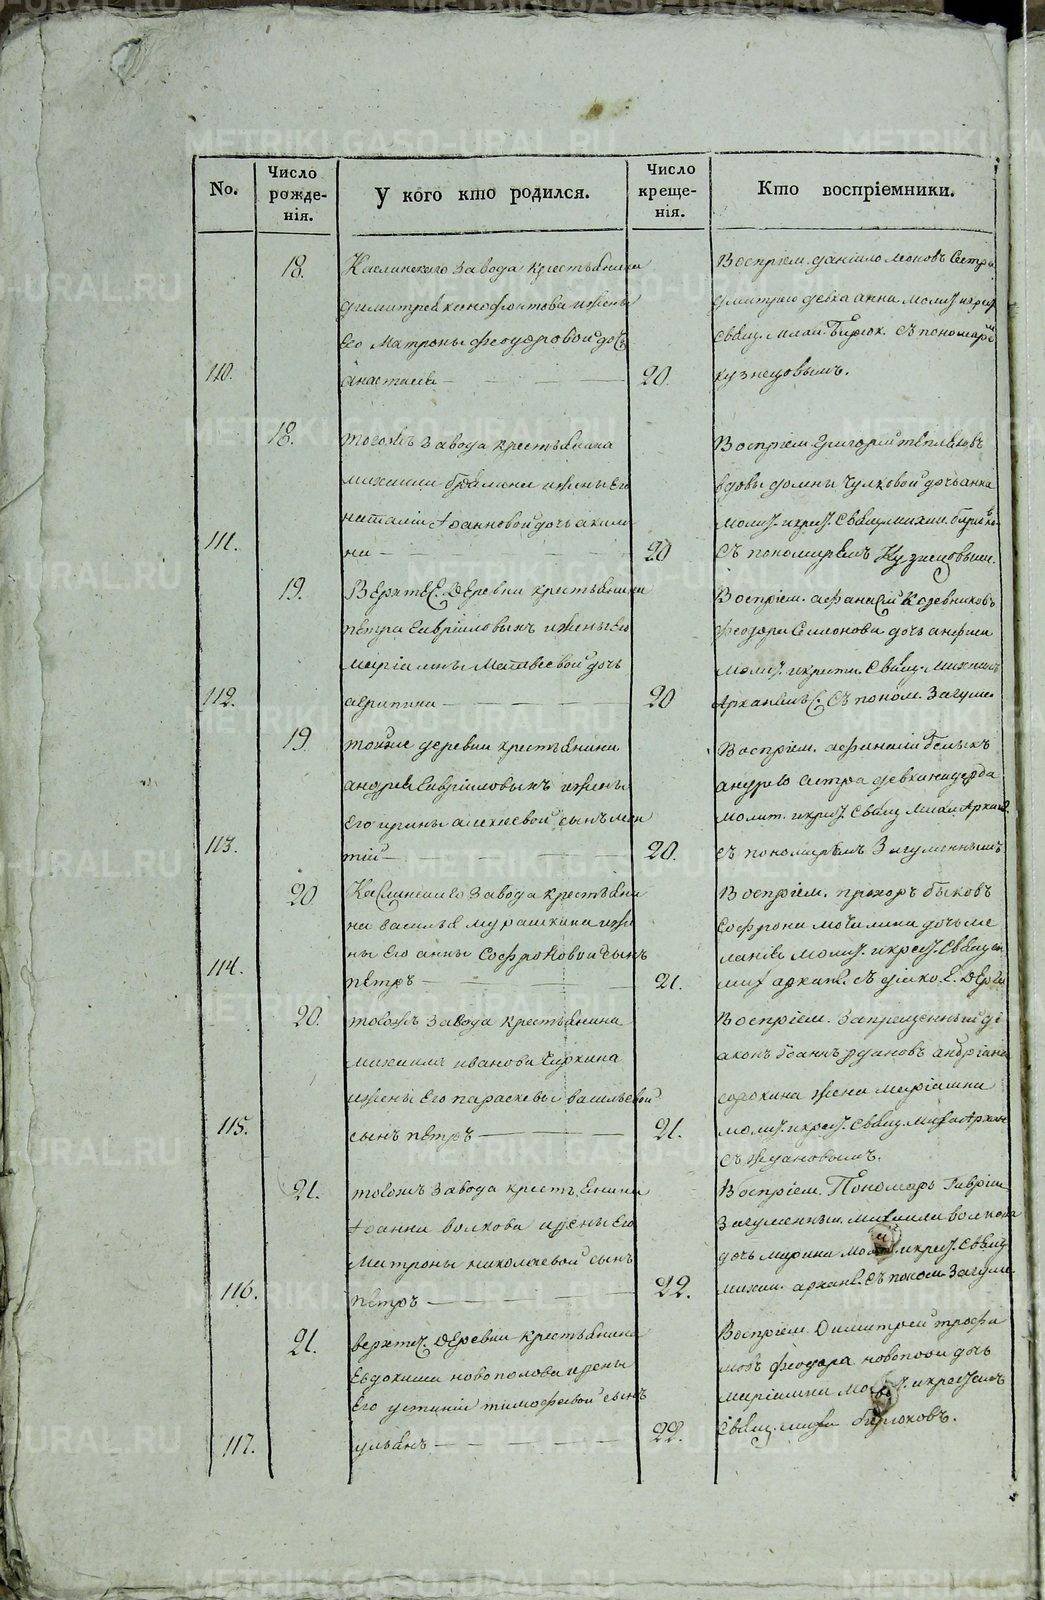 No.
Число рожде-нія.
У кого кто родился.
Число креще-нія.
Кто воспріемники.
18.
Каслинскаго завода крестьянина
димитрея ксенофонтова и жены
его матроны феодоровой дочь
110.
анастасия
20.
Воспріем. даніило леоновъ сестра
дмитрию девка анна молит. и крес.
свящ. михаи. Бирюк. съ пономаремъ
кузнецовымъ.
18.
тогожъ завода крестьянина
михаила и жены его
наталіи Іоанновой дочь акили
111.
на
20
Воспріем. григорий
вдовы домны чулковой дочь анна
молит. и крес. свящ. михаи. бирюко.
съ пономаремъ Кузнецовым.
19.
деревни крестьянина
петра гаврииловыхъ и жены его
маріамны матвеевой дочь
112.
агрипина
20
Воспріем. афанасій кожевниковъ
феодора семенова дочь анфиса
молит. и крести. свящ. михаилъ
съ поном. Загуме.
19.
тойже деревни крестьянина
андрея гаврииловыхъ и жены
его ирины алексеевой сынъ леон
113.
тій
20.
Воспріем. афанасий белыхъ
андрею сестра девка
молит. и крес. свящ. михаи
съ пономаремъ Загуменнымъ
20
Каслинскаго завода крестьяни
на василья мурашкина и же
ны его анны софроновой сынъ
114.
петръ
21.
Воспріем. прохоръ быковъ
софрона мочилина дочь ме
ланія молит. и крес. священ
20.
тогожъ завода крестьянина
михаила иванова
и жены его параскевы васильевой
115.
сынъ петръ
21.
Воспріем. запрещенный ді
аконъ Іоаннъ андріана
сорокина жена маріамна
молит. и крес. свящ. миха
съ ждановымъ.
21.
тогожъ завода крестьянина
Іоанна волкова и жены его
матроны николаевой сынъ
116.
петръ
22.
Воспріем. Пономарь Гавріил
Загуменный. михаила волкова
дочь марина мол. и крес. свящ
михаи. съ поном. Загуме
21.
деревни крестьянина
евдокима новополова и жены
его устиніи тимофеевой сынъ
117.
ульянъ
22.
Воспріем. Димитрей трофи
мовъ феодора дочь
маріамна
свящ. михаи бирюковъ.
METRIKI.GASO-URAL.RU